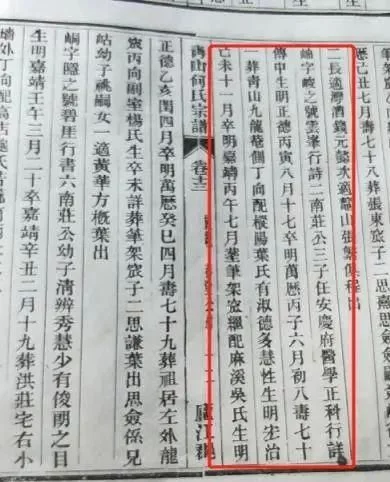 葬張東
歷己丑七月七日壽七十
二長適灣酒錢元懿次適龍山張繁俱程出
峏字峻之號雲峯行詩二南莊公三子任安慶府醫學正科行詳
傳中生明正德丙寅八月十七卒明萬歷丙子六月初八壽七十
一葬青山九龍菴側丁向配樅陽葉氏有淑德多慧性生明宏治
己未十一月卒明嘉靖丙午七月葬筆架窊繼配麻溪吳氏生明
青山何氏宗譜 卷十三 廬江郡
正德乙亥閏四月卒明萬歷癸巳四月壽七十九葬祖居左外龍
窊丙向副室楊氏生卒未詳葬筆架窊子二思謙葉出思僉係兄
岵幼子祧嗣女一適黃華方概葉出
峒字隱之號碧厓行書六南莊公幼子清辨秀慧少有俊朗之目
生明嘉靖壬午三月二十卒嘉靖辛丑二月十九葬洪莊宅右小
墻外丁向配高店